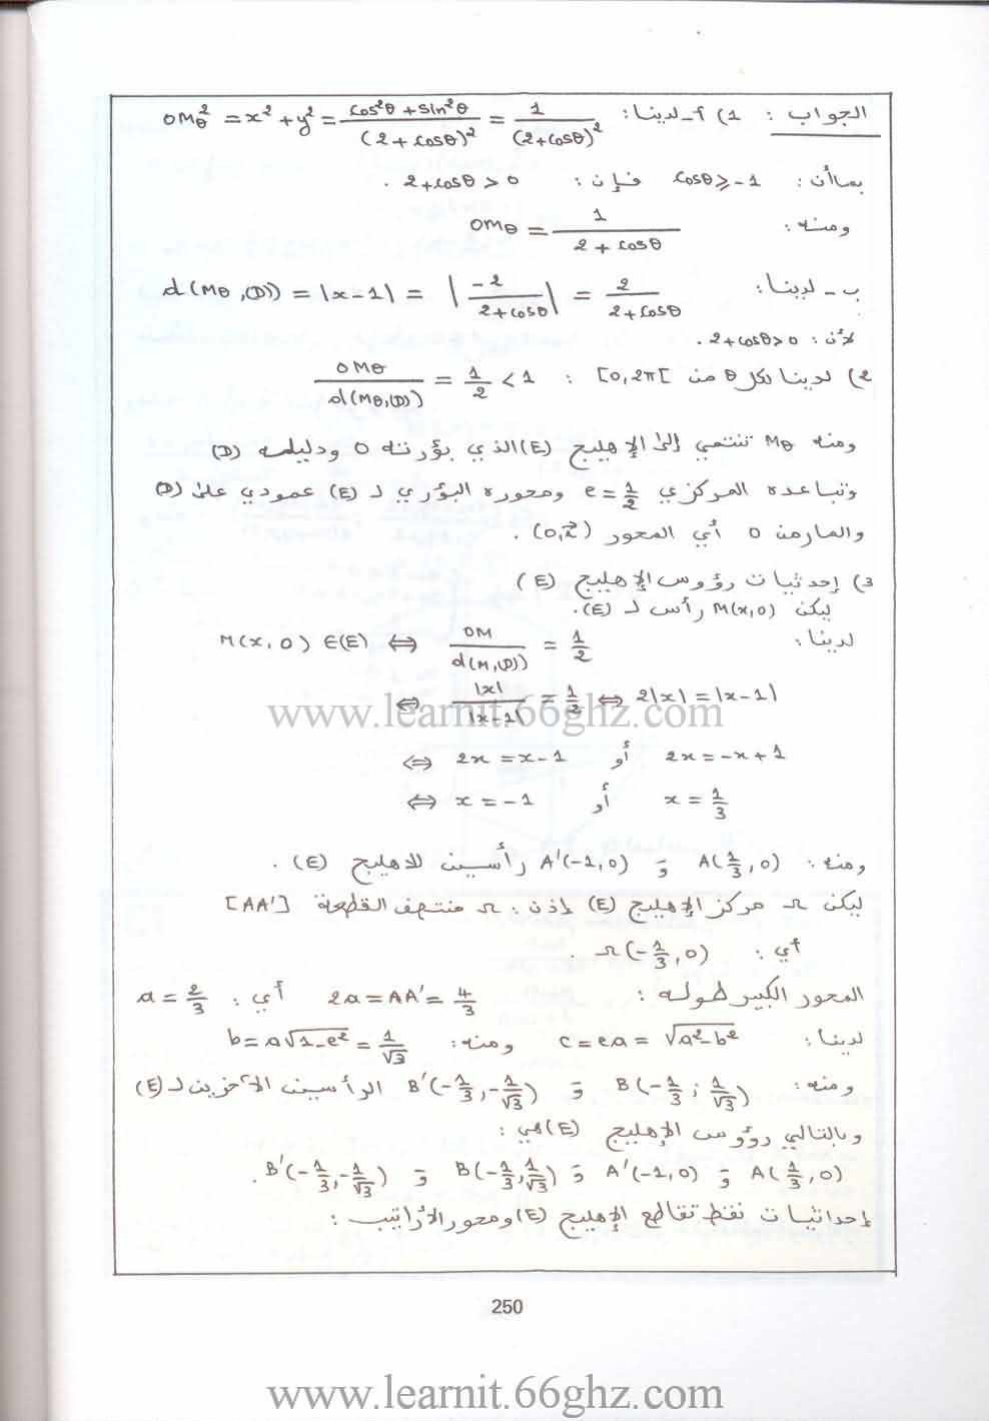 الجواب : 1) أ- لدينا: OMθ² = x² + y² = (cos²θ + sin²θ)/(2 + cosθ)² = 1/(2 + cosθ)²
بما أن : cosθ ≥ -1 فإن : 2 + cosθ > 0 .
ومنه : OMθ = 1/(2 + cosθ)
ب - لدينا : d(Mθ,(D)) = |x - 1| = |-2/(2 + cosθ)| = 2/(2 + cosθ)
لأن : 2 + cosθ > 0 .
2) لدينا لكل θ من [0, 2π[ : OMθ/d(Mθ,(D)) = 1/2 < 1
ومنه Mθ تنتمي إلى الإهليج (E) الذي بؤرته O ودليله (D)
وتباعده المركزي e = 1/2 ومحوره البؤري لـ (E) عمودي على (D)
والمار من O أي المحور (O, i⃗) .
3) إحداثيات رؤوس الإهليج (E)
ليكن M(x, 0) رأس لـ (E).
لدينا : M(x, 0) ∈ (E) ⇔ OM/d(M,(D)) = 1/2
⇔ |x|/|x - 1| = 1/2 ⇔ 2|x| = |x - 1|
⇔ 2x = x - 1 أو 2x = -x + 1
⇔ x = -1 أو x = 1/3
ومنه : A(1/3, 0) و A'(-1, 0) رأسين للاهليج (E) .
ليكن Ω مركز الإهليج (E) إذن : Ω منتصف القطعة [AA']
أي : Ω(-1/3, 0) .
المحور الكبير طوله : 2a = AA' = 4/3 أي : a = 2/3
لدينا : c = ea = √(a² - b²) ومنه : b = a√(1 - e²) = 1/√3
ومنه : B(-1/3 ; 1/√3) و B'(-1/3, -1/√3) الرأسين الآخرين لـ (E)
وبالتالي رؤوس الإهليج (E) هي :
A(1/3, 0) و A'(-1, 0) و B(-1/3, 1/√3) و B'(-1/3, -1/√3) .
إحداثيات نقط تقاطع الإهليج (E) ومحور الأراتيب :
www.learnit.66ghz.com
250
www.learnit.66ghz.com